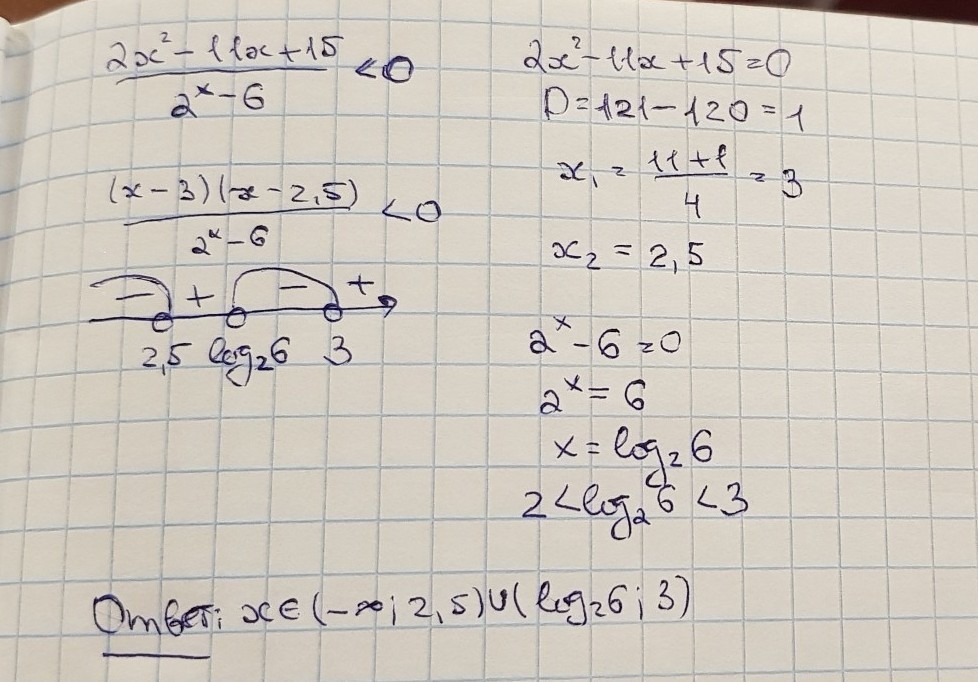 (2x²-11x+15)/(2ˣ-6) <0
(x-3)(x-2,5)/(2ˣ-6) <0
- + - +
2,5 log₂6 3
2x²-11x+15=0
D=121-120=1
x₁ = (11+1)/4 = 3
x₂ = 2,5
2ˣ-6=0
2ˣ=6
x=log₂6
2<log₂6<3
Ответ: x∈(-∞; 2,5)∪(log₂6; 3)